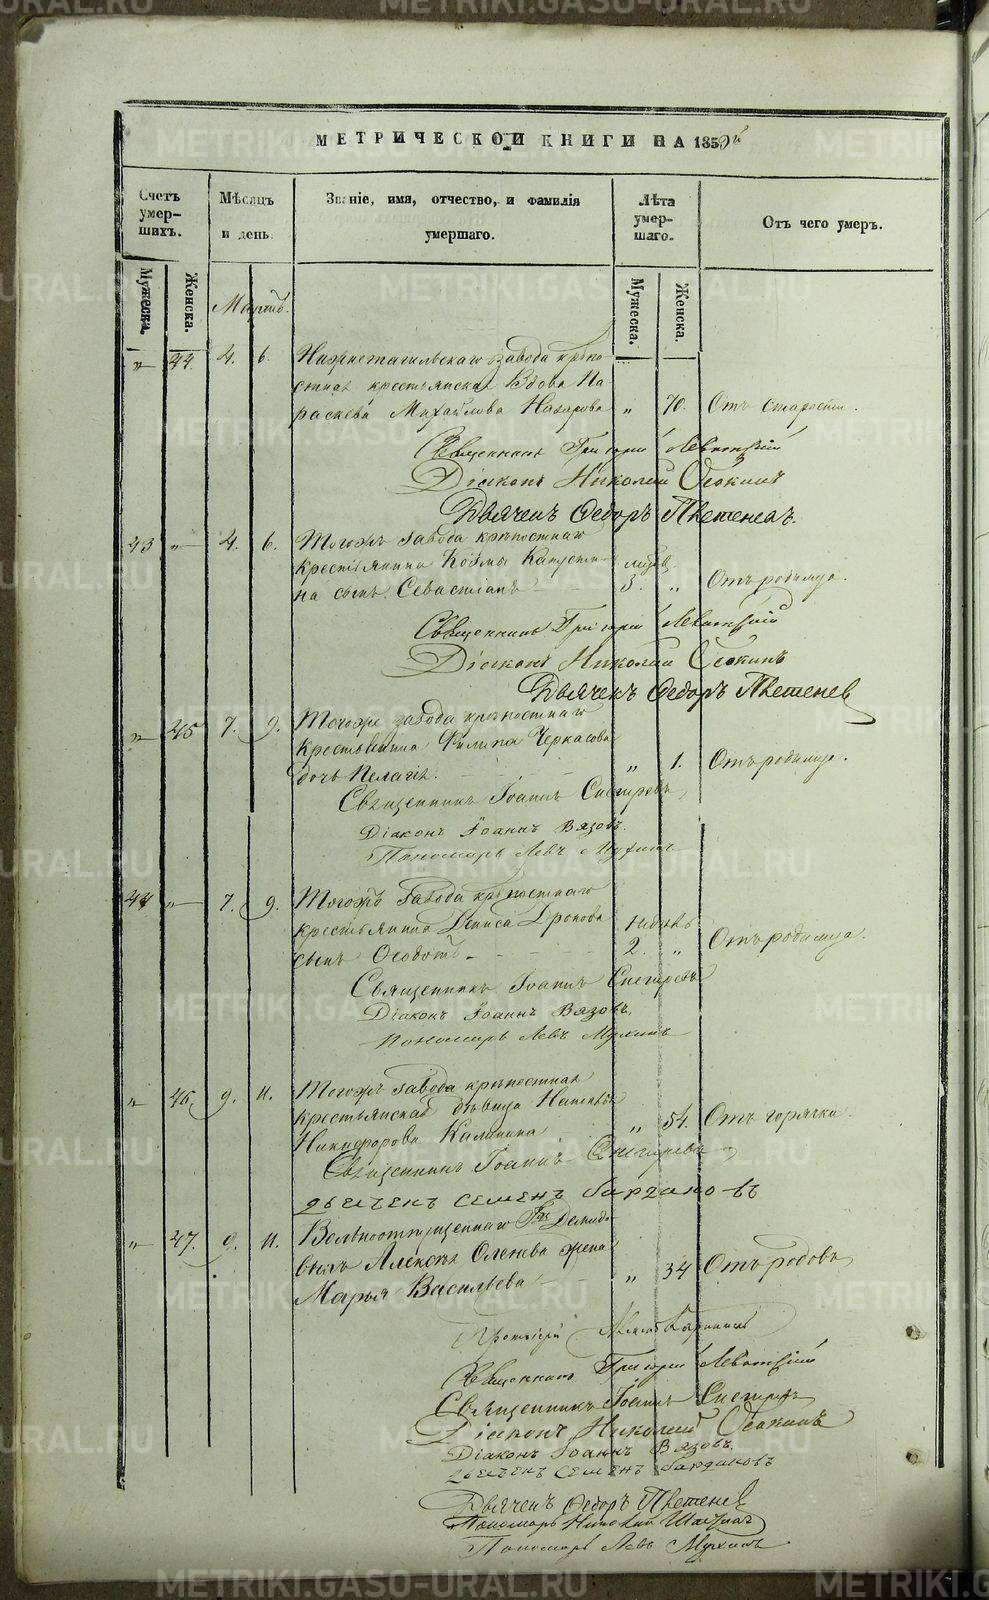 МЕТРИЧЕСКОЙ КНИГИ НА 1850й
Счетъ умер-шихъ.
Мѣсяцъ и день.
Званіе, имя, отчество, и фамилія умершаго.
Лѣта умер-шаго.
Отъ чего умеръ.
Мужеска.
Женска.
Мужеска.
Женска.
Мартъ.
„ 44. 4. 6. Нижнетагильскаго завода крѣпо-
стная крестьянская вдова Па-
раскева Михайлова Назарова „ 70. Отъ старости.
Священникъ Григорій Левитскій
Діаконъ Николай Осокинъ
Дьячекъ Федоръ
43 „ 4. 6. Тогожъ завода крѣпостнаго
крестьянина Козмы Капусти-
на сынъ Севастіанъ 3. „ Отъ родимца.
Священникъ Григорій Левитскій
Діаконъ Николай Осокинъ
Дьячекъ Федоръ
„ 45 7. 9. Тогоже завода крѣпостнаго
крестьянина Филипа Черкасова
дочь Пелагія. „ 1. Отъ родимца.
Священникъ Іоаннъ Снегиревъ
Діаконъ Іоаннъ Вязовъ.
Пономарь Левъ Мухинъ
44 „ 7. 9. Тогожъ завода крѣпостнаго
крестьянина Дениса Дронова недѣль
сынъ Ѳедотъ 2. „ Отъ родимца.
Священникъ Іоаннъ Снегиревъ
Діаконъ Іоаннъ Вязовъ.
Пономарь Левъ Мухинъ
„ 46. 9. 11. Тогожъ завода крѣпостная
крестьянская дѣвица Наталья
Никифорова Калинина „ 54. Отъ горячки.
Священникъ Іоаннъ Снегиревъ
дьечекъ Семенъ Бардаковъ
„ 47. 9. 11. Вольноотпущеннаго Гг. Демидо-
выхъ Алексѣя Оленева жена
Марья Васильева „ 34 Отъ родовъ
Протоіерей
Священникъ Григорій Левитскій
Священникъ Іоаннъ Снегиревъ
Діаконъ Николай Осокинъ
Діаконъ Іоаннъ Вязовъ.
дьечекъ Семенъ Бардаковъ
Дьячекъ Федоръ
Пономарь Николай
Пономарь Левъ Мухинъ
METRIKI.GASO-URAL.RU